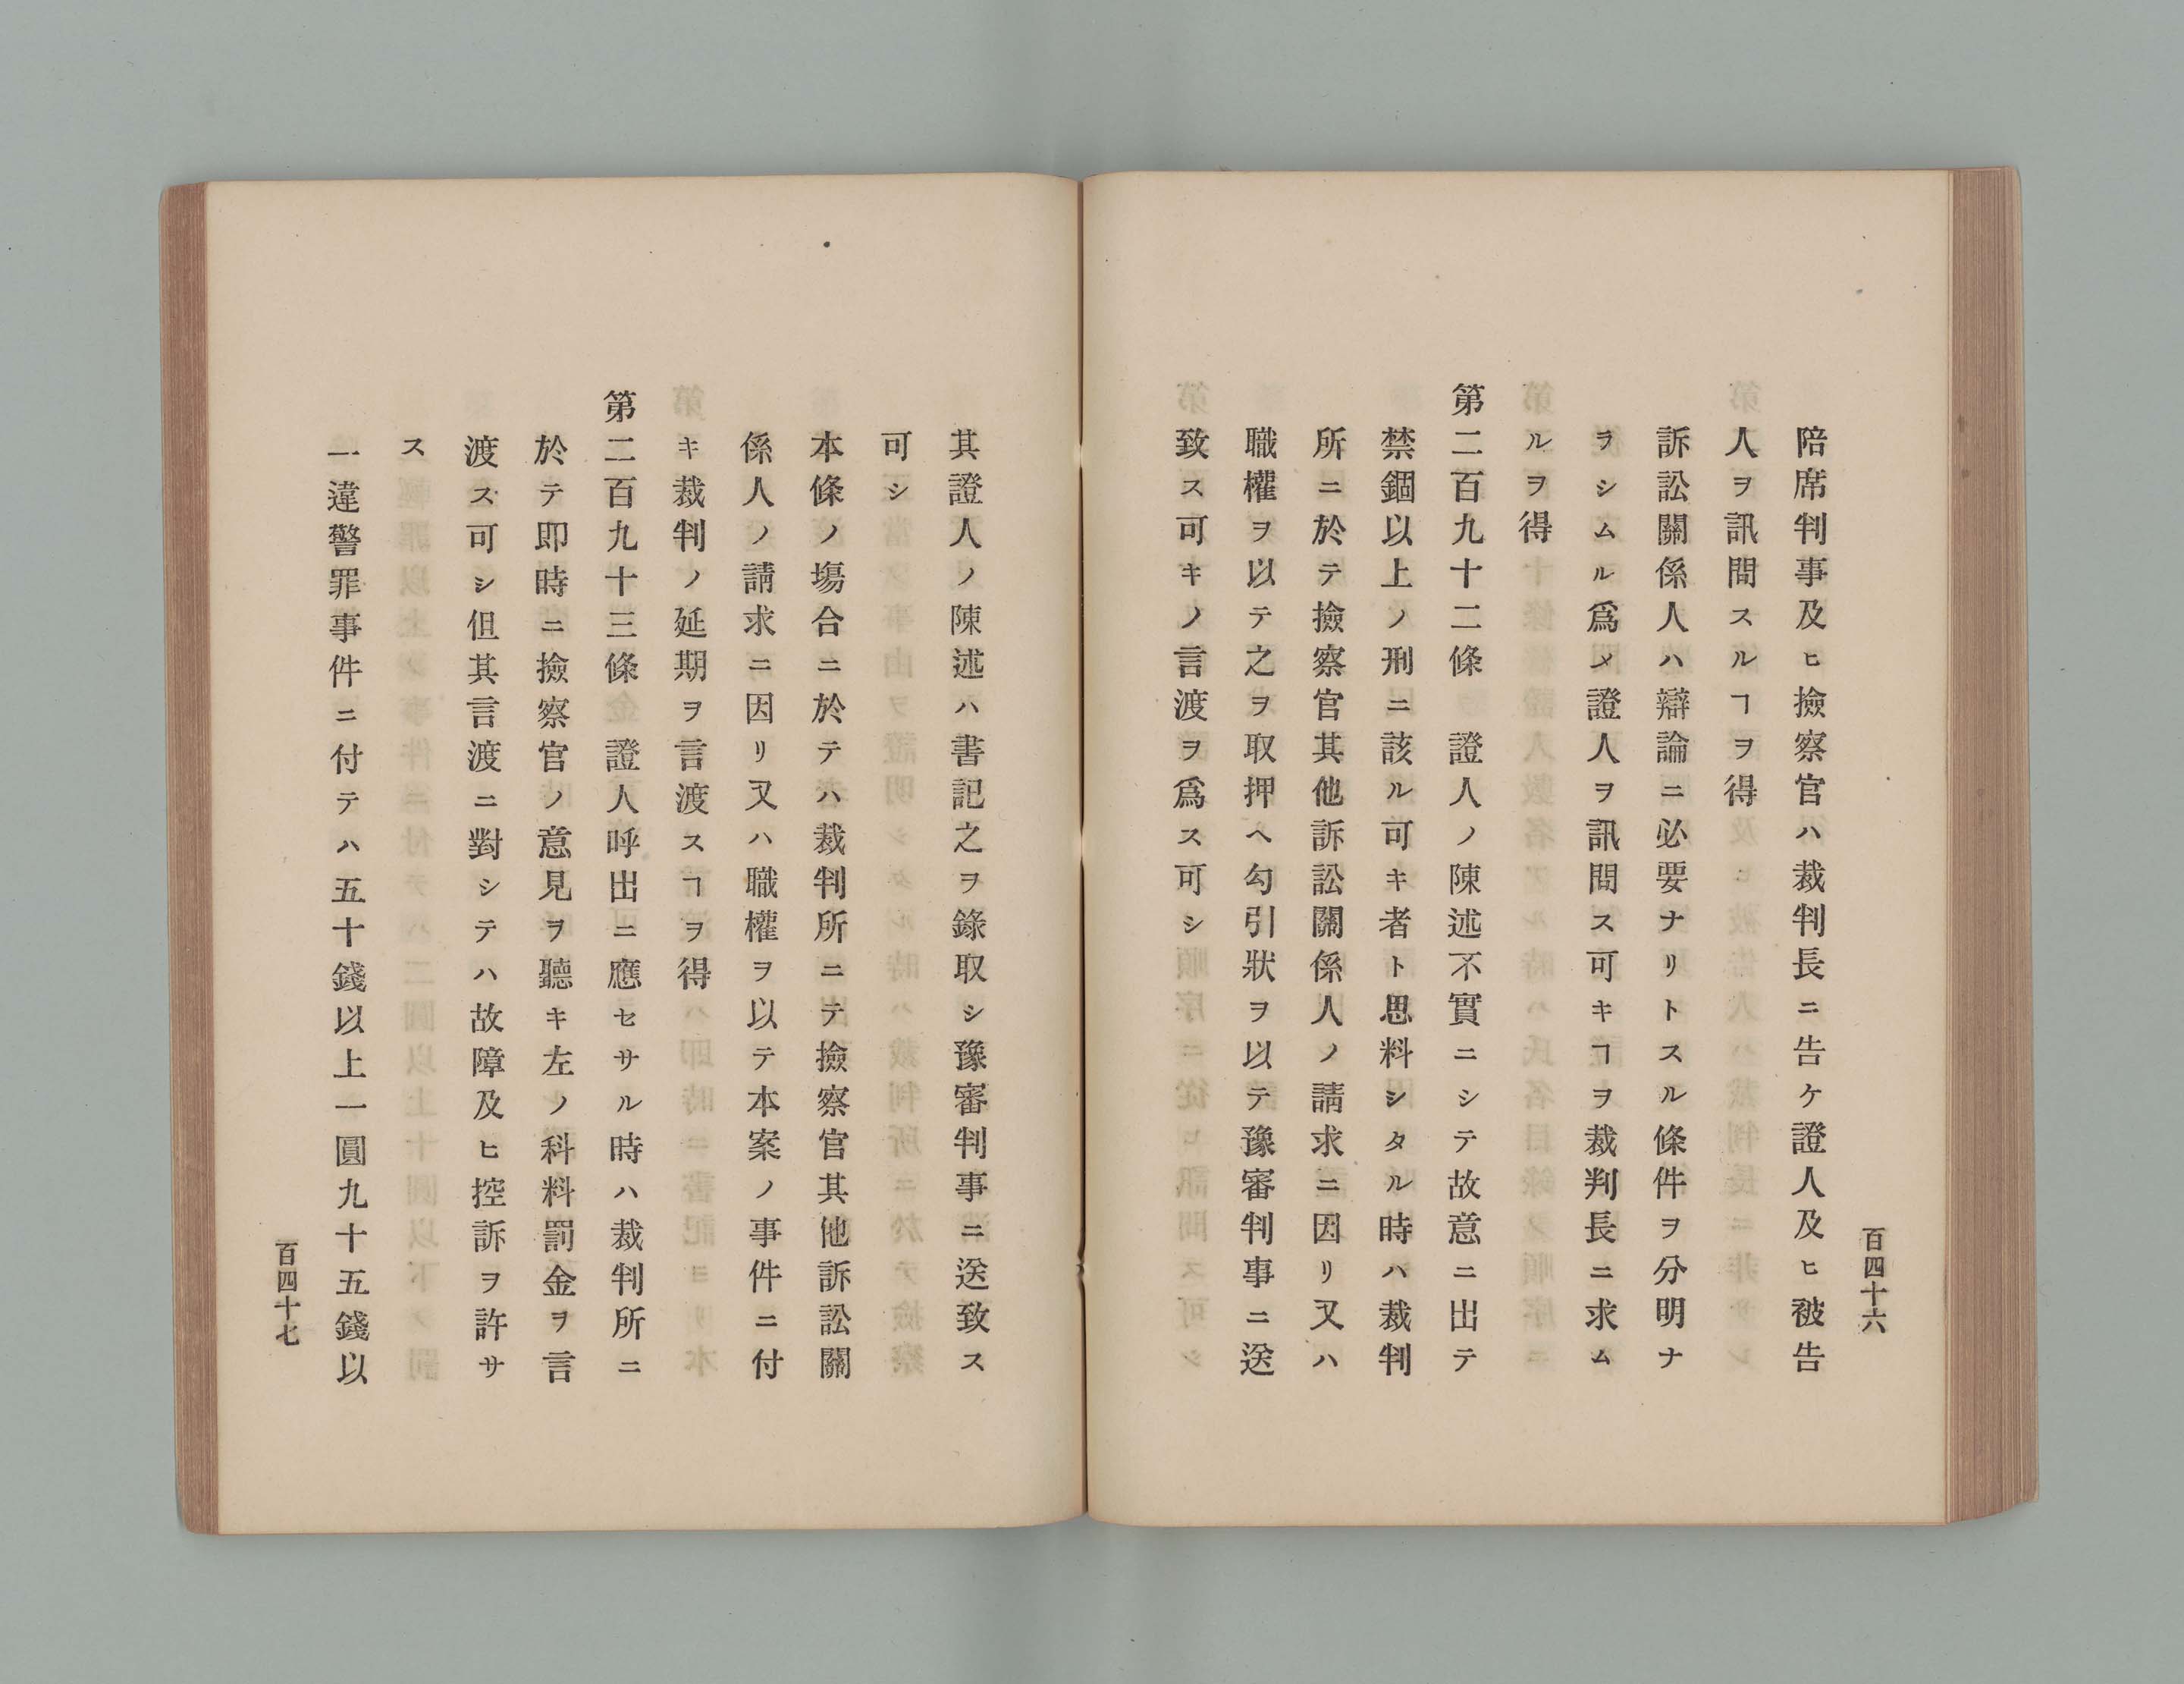 百四十六
陪席判事及ヒ撿察官ハ裁判長ニ告ケ證人及ヒ被告
人ヲ訊問スルヿヲ得
訴訟關係人ハ辯論ニ必要ナリトスル條件ヲ分明ナ
ヲシムル爲メ證人ヲ訊問ス可キヿヲ裁判長ニ求ム
ルヲ得
第二百九十二條 證人ノ陳述不實ニシテ故意ニ出テ
禁錮以上ノ刑ニ該ル可キ者ト思料シタル時ハ裁判
所ニ於テ撿察官其他訴訟關係人ノ請求ニ因リ又ハ
職權ヲ以テ之ヲ取押ヘ勾引狀ヲ以テ豫審判事ニ送
致ス可キノ言渡ヲ爲ス可シ
其證人ノ陳述ハ書記之ヲ錄取シ豫審判事ニ送致ス
可シ
本條ノ塲合ニ於テハ裁判所ニテ撿察官其他訴訟關
係人ノ請求ニ因リ又ハ職權ヲ以テ本案ノ事件ニ付
キ裁判ノ延期ヲ言渡スヿヲ得
第二百九十三條 證人呼出ニ應セサル時ハ裁判所ニ
於テ即時ニ撿察官ノ意見ヲ聽キ左ノ科料罰金ヲ言
渡ス可シ但其言渡ニ對シテハ故障及ヒ控訴ヲ許サ
ス
一違警罪事件ニ付テハ五十錢以上一圓九十五錢以
百四十七